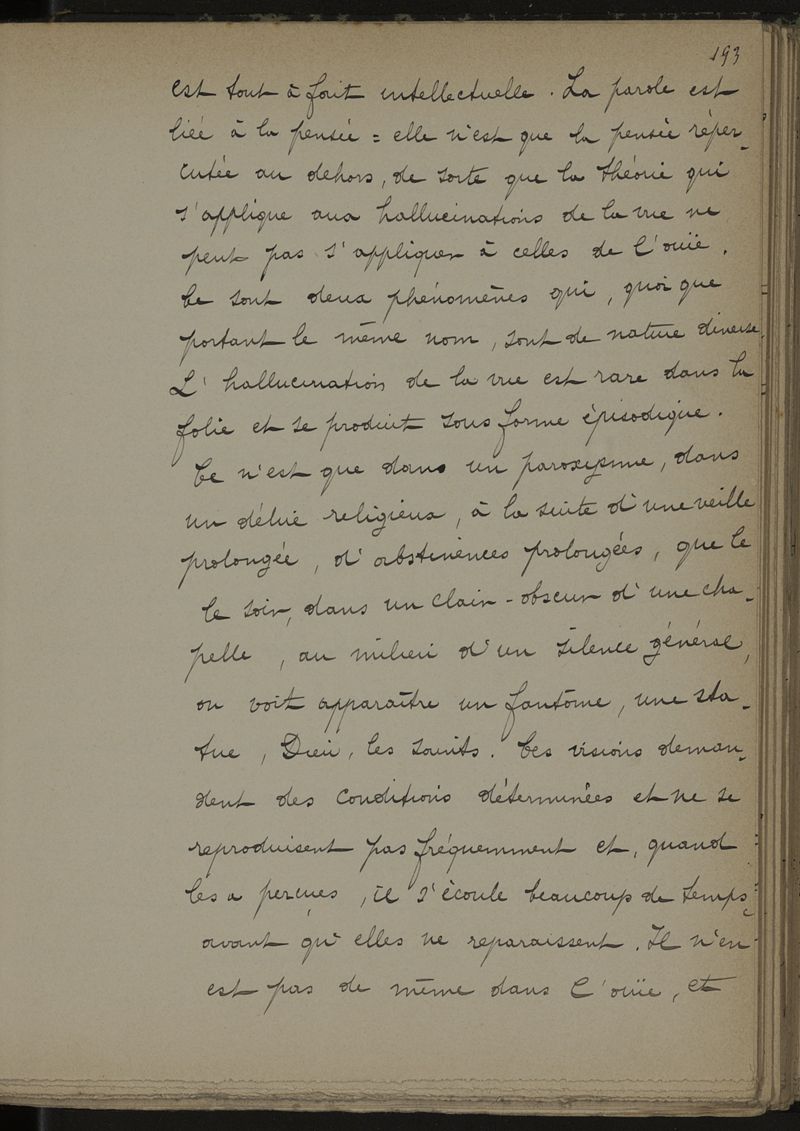 193
est tout à fait intellectuelle. La parole est
liée à la pensée = elle n'est que la pensée réper-
cutée au dehors, de sorte que la théorie qui
s'applique aux hallucinations de la vue ne
peut pas s'appliquer à celles de l'ouïe.
Ce sont deux phénomènes qui, quoi que
portant le même nom, sont de nature diverse.
L'hallucination de la vue est rare dans la
folie et se produit sous forme épisodique.
Ce n'est que dans un paroxysme, dans
un délire religieux, à la suite d'une veille
prolongée, d'abstinences prolongées, que le
le soir, dans un clair-obscur d'une cha-
pelle, au milieu d'un silence général,
on voit apparaître un fantôme, une sta-
tue, Dieu, les saints. Ces visions deman-
dent des conditions déterminées et ne se
reproduisent pas fréquemment et, quand
les a perçues, il s'écoule beaucoup de temps
avant qu'elles ne reparaissent. Il n'en
est pas de même dans l'ouïe, et